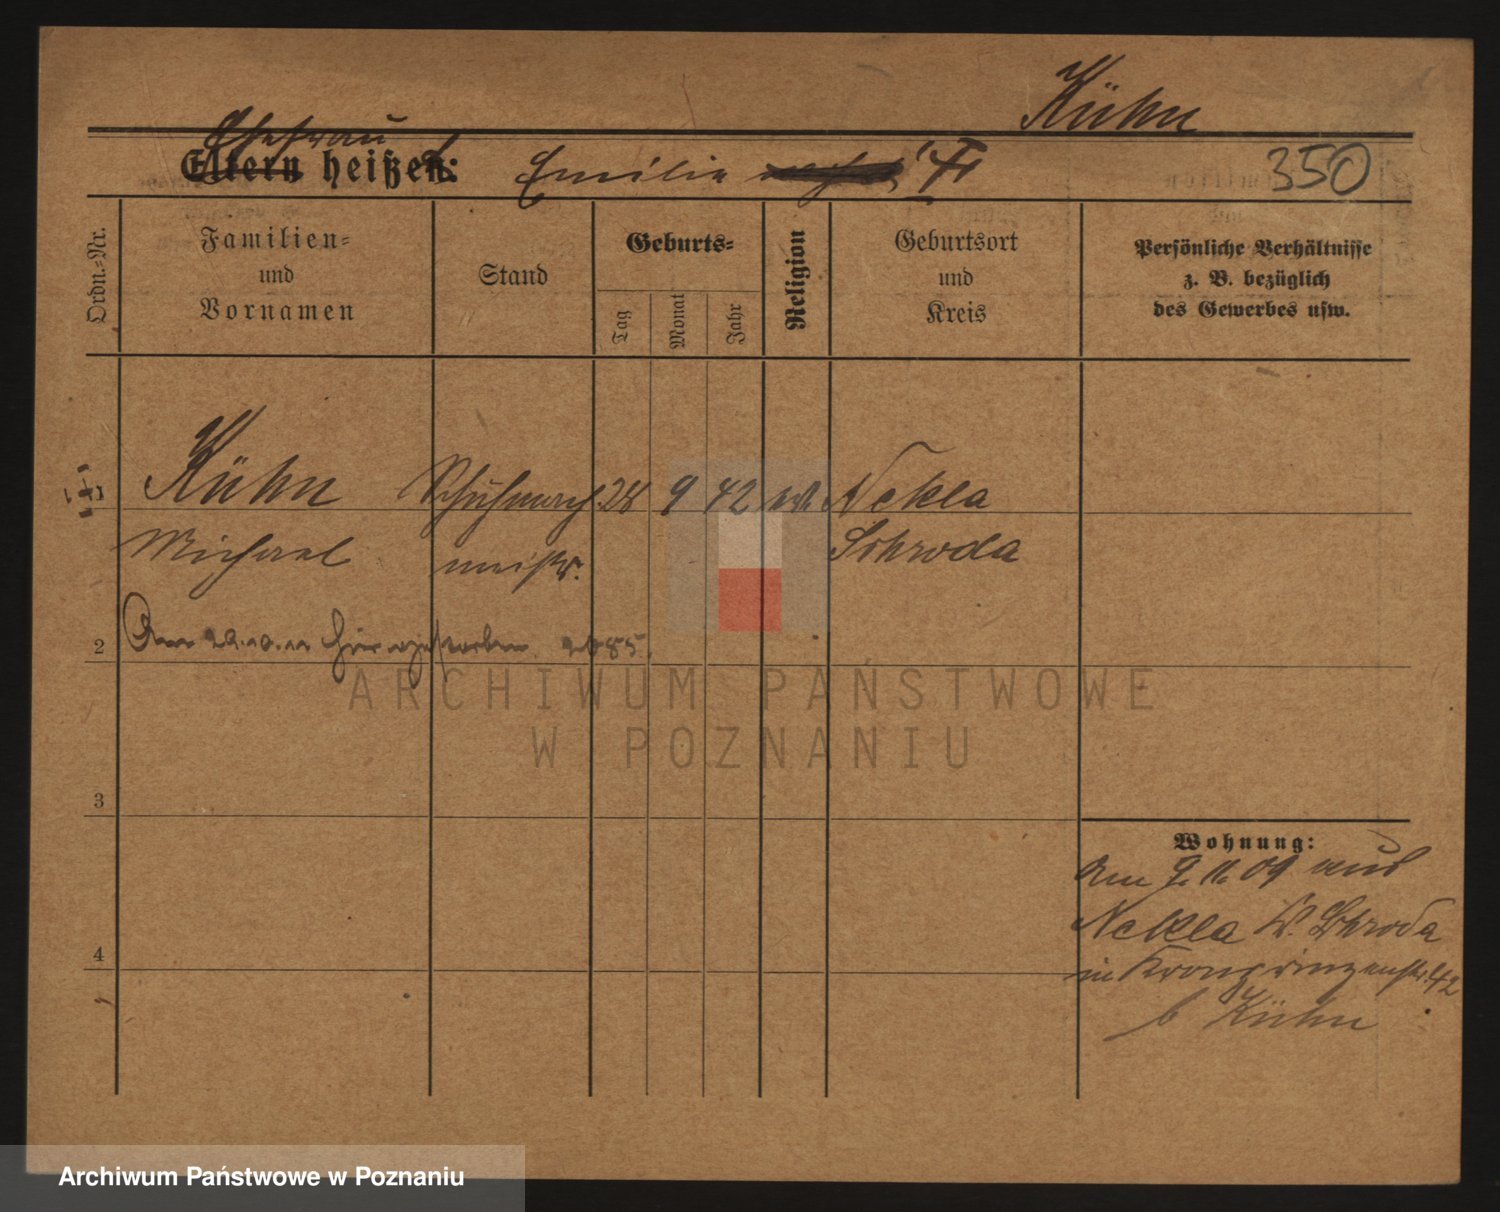 Kühn
Ehefrau
Eltern heißen:
Emilie
350
Ordn.-Nr.
Familien-
und
Vornamen
Stand
Geburts-
Tag
Monat
Jahr
Religion
Geburtsort
und
Kreis
Persönliche Verhältnisse
z. B. bezüglich
des Gewerbes usw.
Kühn Schuhmach 28 9 42 Nekla
Michael meistr. Schroda
2
Am hier verstorben
ARCHIWUM PAŃSTWOWE
W POZNANIU
3
Wohnung:
Am 9. 11. 09 aus
Nekla Kr. Schroda
4
in Kronprinzenstr. 42
b Kühn
Archiwum Państwowe w Poznaniu